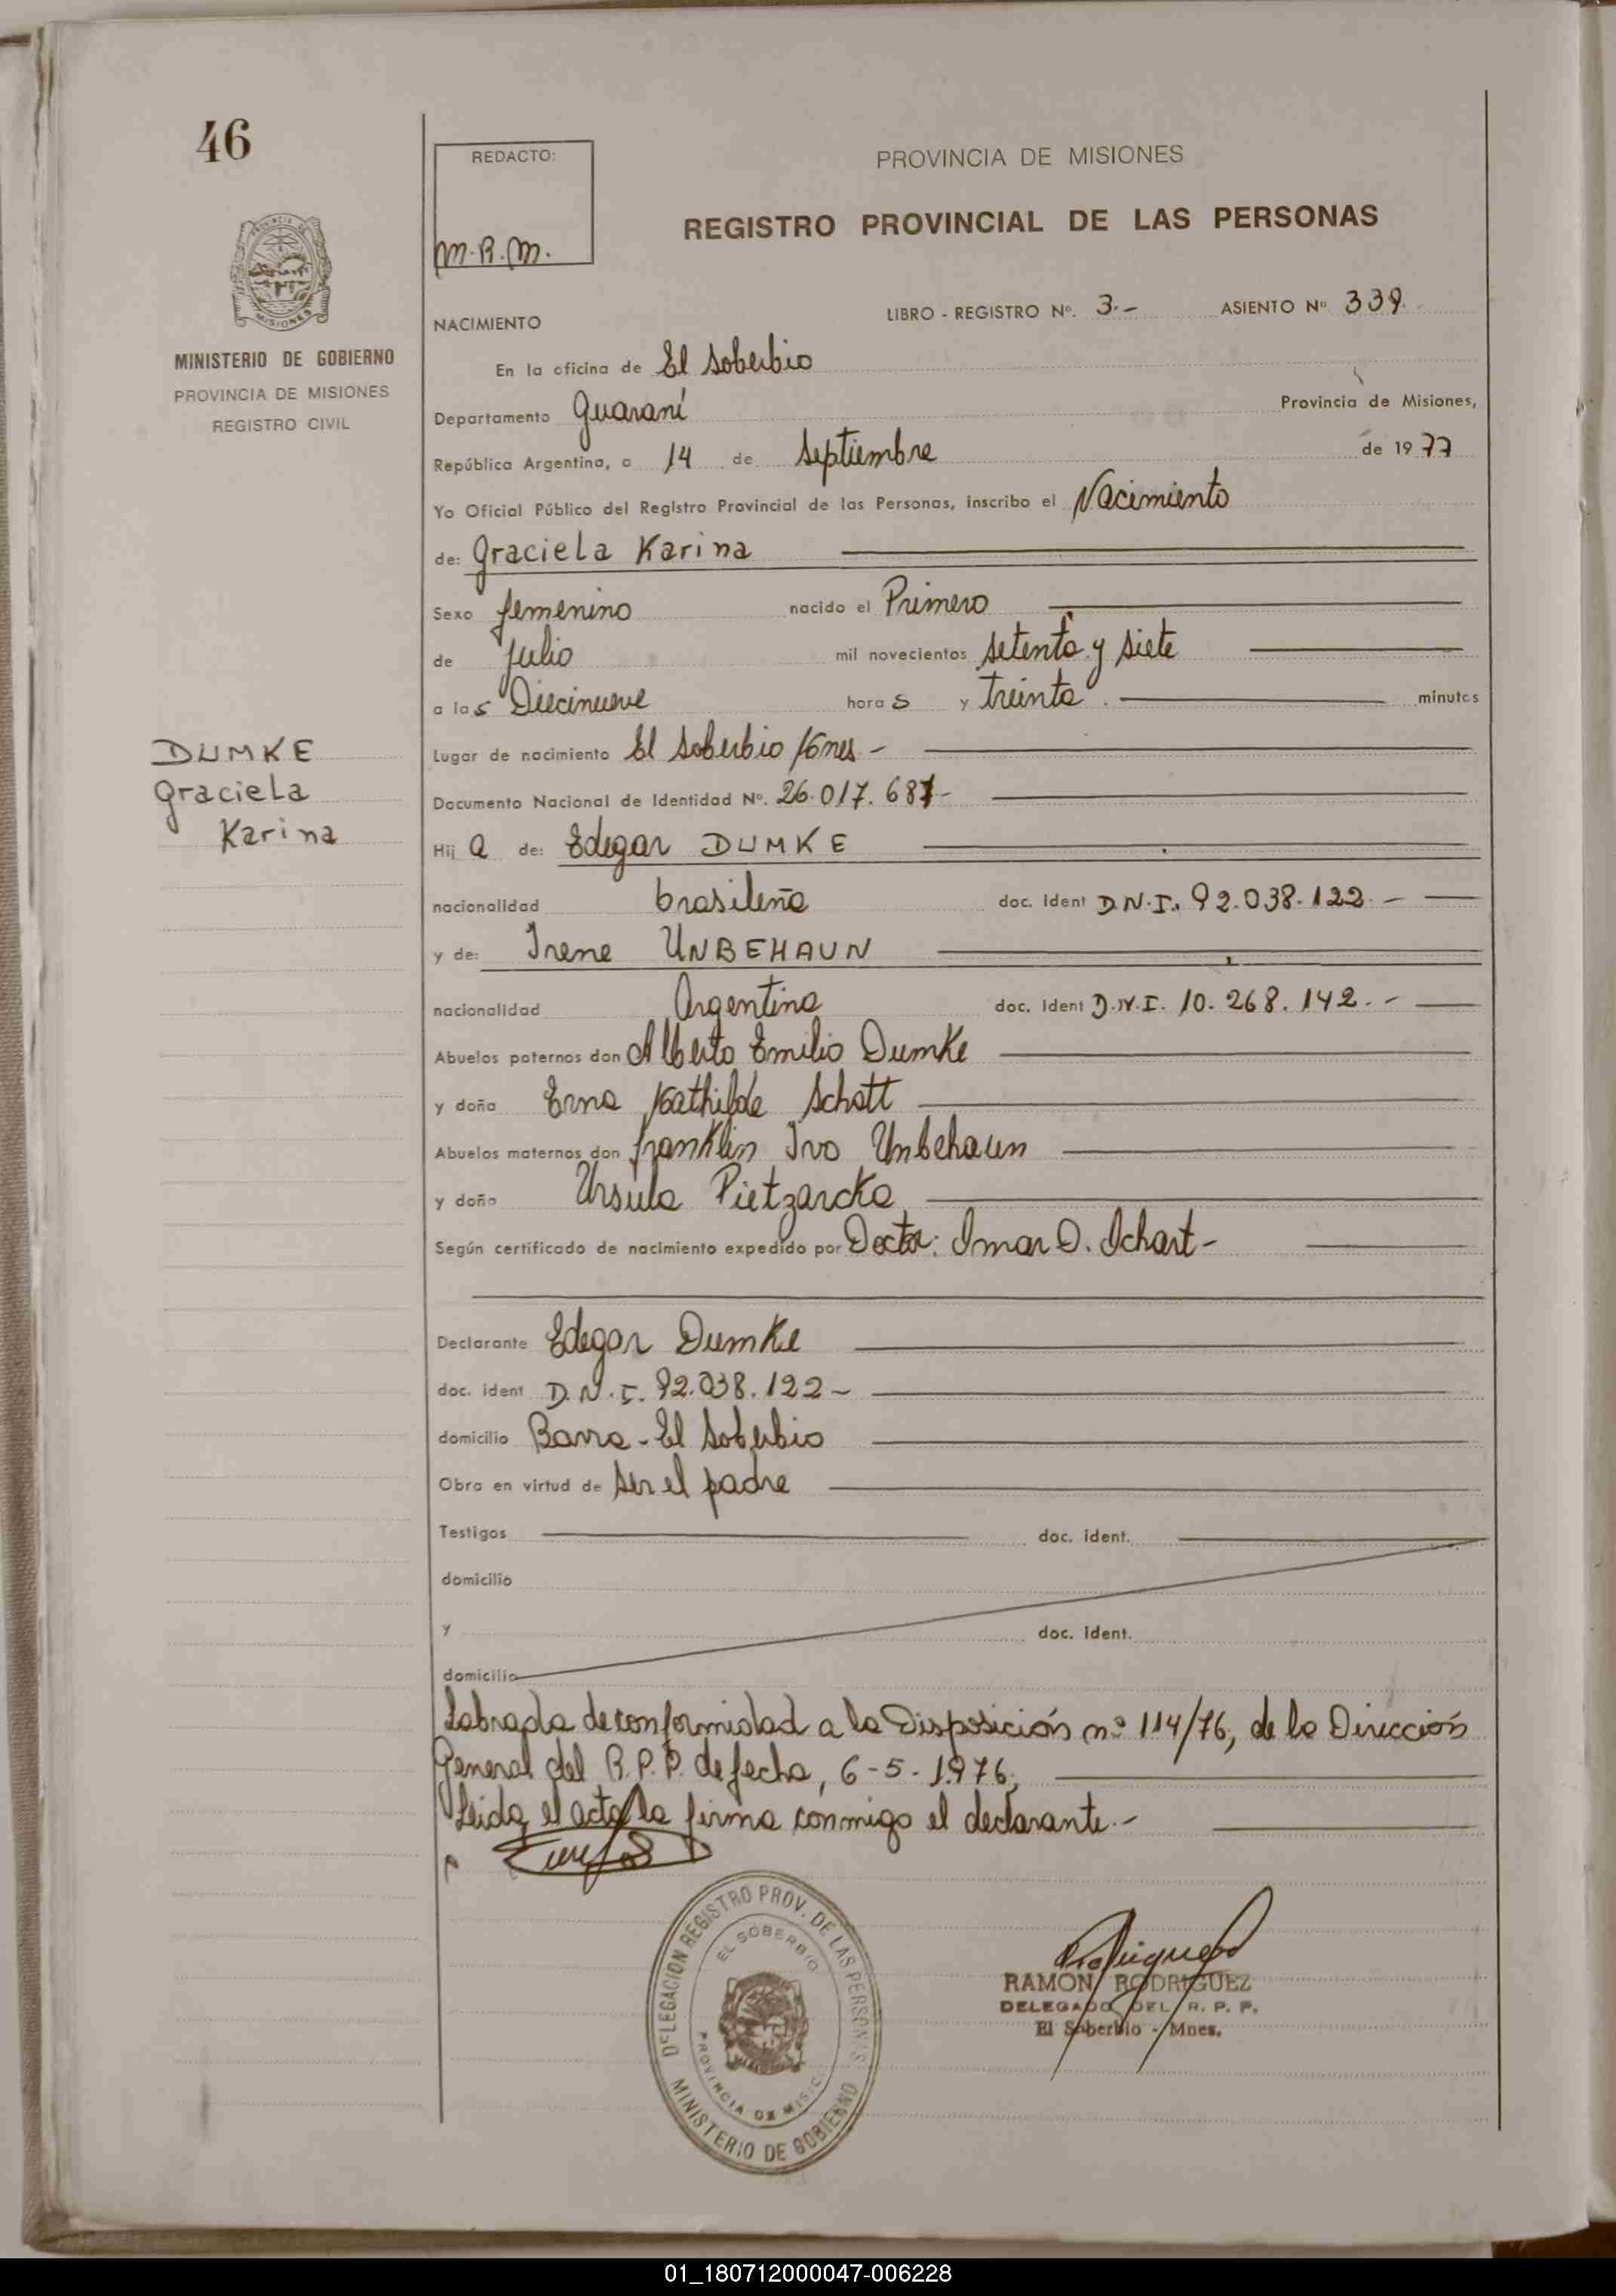 46
REDACTO:
M.R.M.
PROVINCIA DE MISIONES
REGISTRO PROVINCIAL DE LAS PERSONAS
MINISTERIO DE GOBIERNO
PROVINCIA DE MISIONES
REGISTRO CIVIL
LIBRO - REGISTRO Nº. 3.- ASIENTO Nº 339.
NACIMIENTO
En la oficina de El Soberbio
Departamento Guaraní Provincia de Misiones,
República Argentina, a 14 de Septiembre de 1977
Yo Oficial Público del Registro Provincial de las Personas, inscribo el Nacimiento
de: Graciela Karina
Sexo femenino nacido el Primero
de Julio mil novecientos setenta y siete
a las Diecinueve horas y treinta minutos
Lugar de nacimiento El Soberbio Mnes -
Documento Nacional de Identidad Nº. 26.017.687-
DUMKE
Graciela
Karina
Hija de: Edegar DUMKE
nacionalidad brasileña doc. ident D.N.I. 92.038.122.-
y de: Irene UNBEHAUN
nacionalidad Argentina doc. ident D.N.I. 10.268.142.-
Abuelos paternos don Alberto Emilio Dumke
y doña Erna Mathilde Schott
Abuelos maternos don Franklin Ivo Unbehaun
y doña Ursula Pietzarcka
Según certificado de nacimiento expedido por Doctor: Omar O. Ichart-
Declarante Edegar Dumke
doc. ident D.N.I. 92.038.122-
domicilio Barra-El Soberbio
Obra en virtud de ser el padre
Testigos doc. ident.
domicilio
y doc. ident.
domicilio
Labrada de conformidad a la Disposición nº 114/76, de la Dirección
General del R.P.P. de fecha, 6-5-1.976,
Leida el acta la firma conmigo el declarante.-
DELEGACION REGISTRO PROV. DE LAS PERSONAS
EL SOBERBIO
PROVINCIA DE MISIONES
MINISTERIO DE GOBIERNO
RAMON RODRIGUEZ
DELEGADO DEL R. P. P.
El Soberbio - Mnes.
01_180712000047-006228